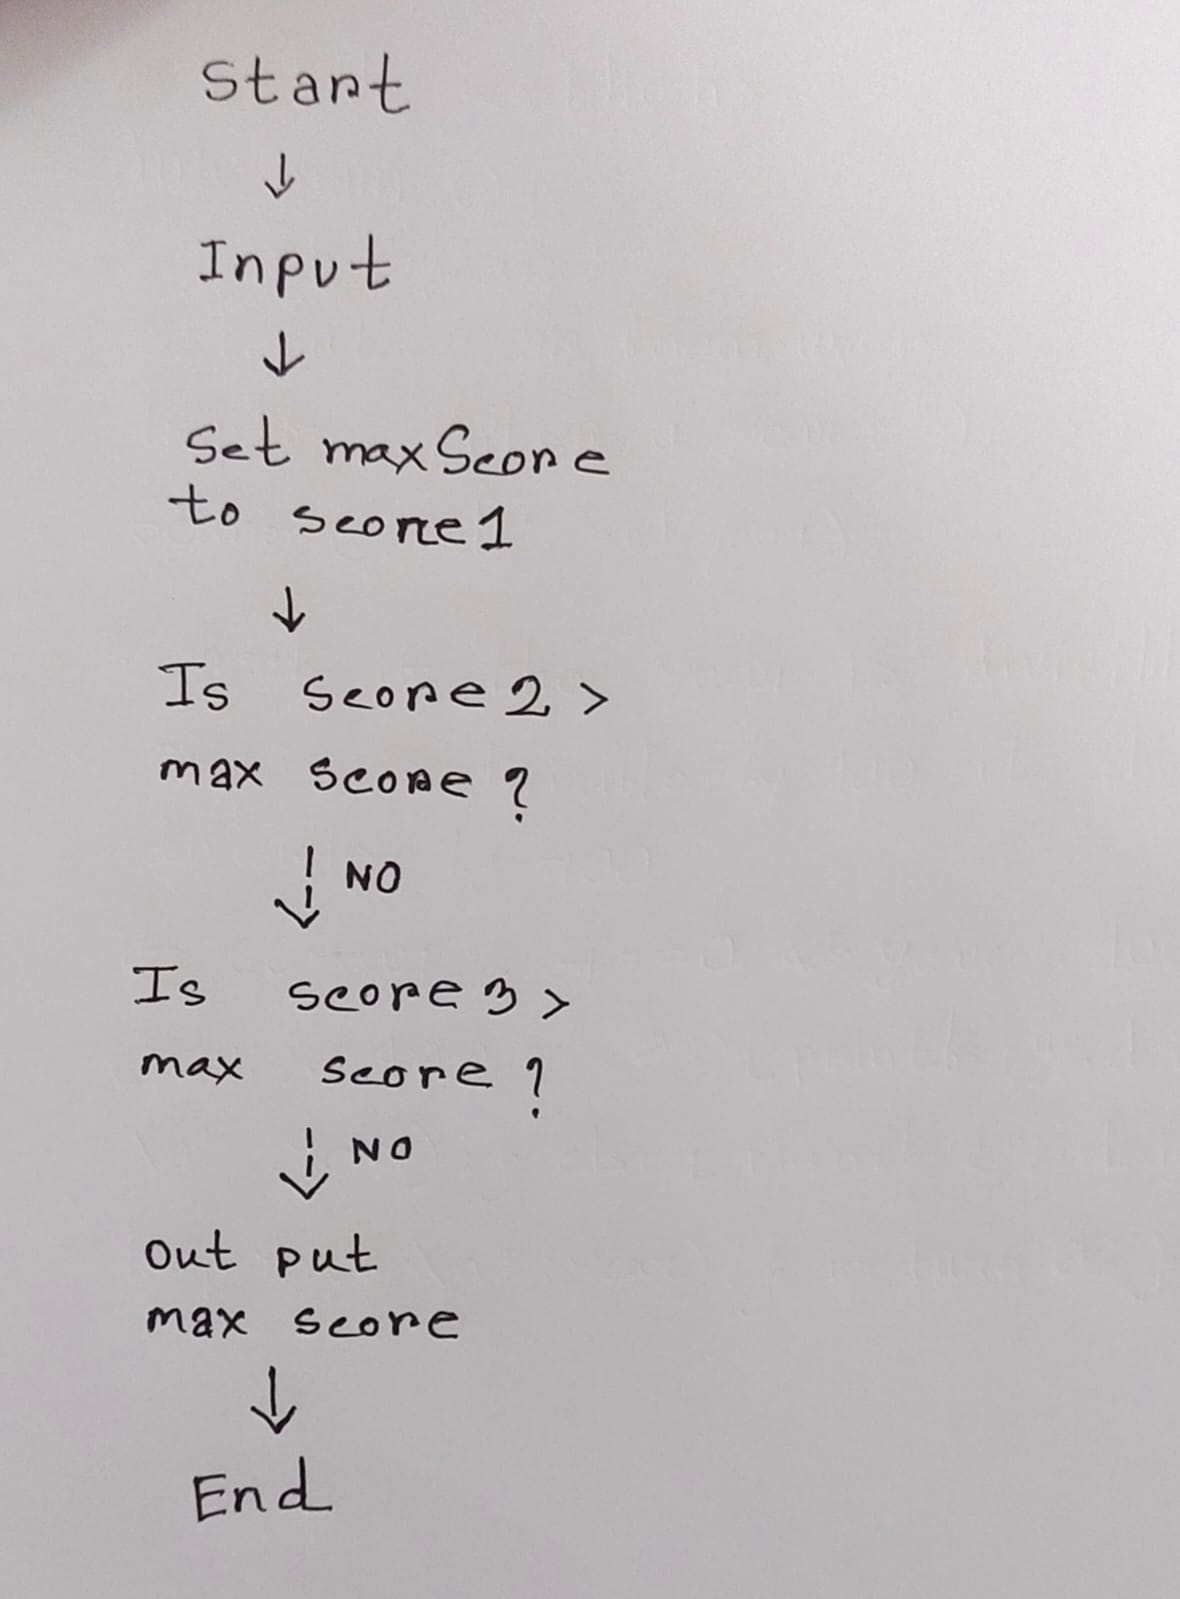 Start
↓
Input
↓
Set maxScore
to score1
↓
Is score2 >
max score?
↓ NO
Is score3 >
max score?
↓ NO
out put
max score
↓
End